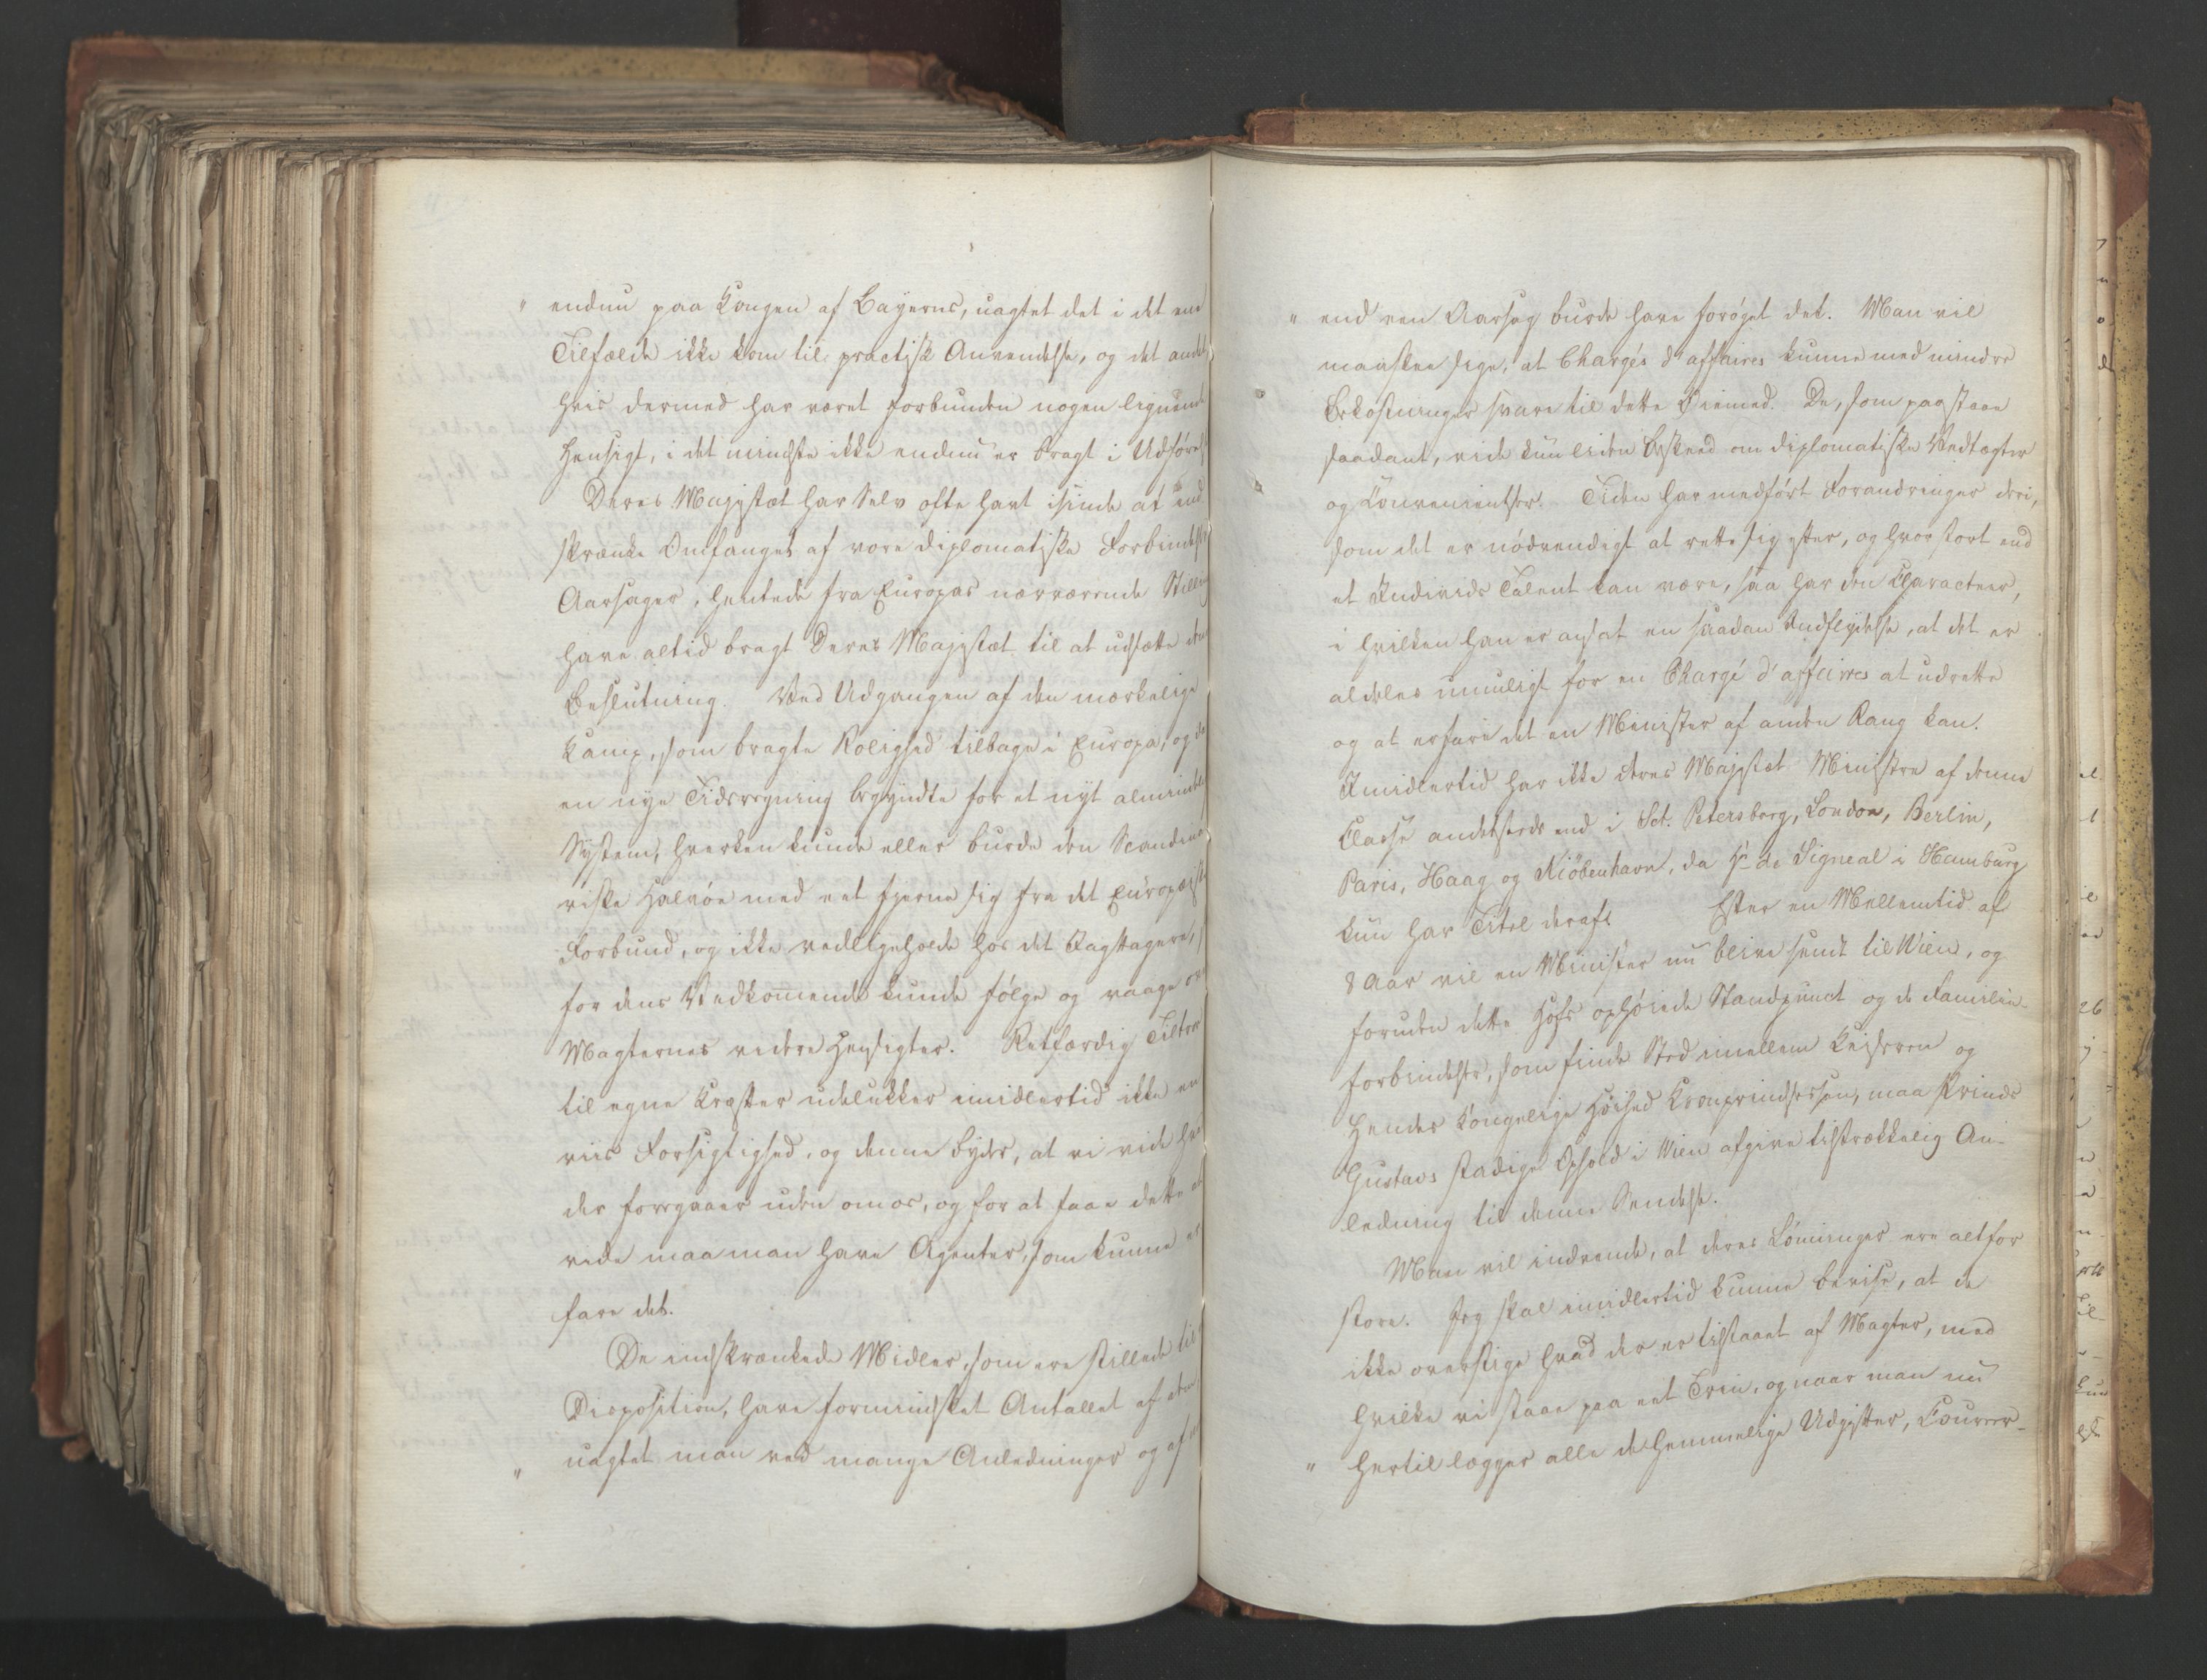 " endnu paa Kongen af Bayerns, uagtet det i det ene
Tilfælde ikke kom til practisk Anvendelse, og det andet
hvis dermed har været forbunden nogen lignende
Hensigt, i det mindste ikke endnu er bragt i Udførelse
Deres Majestæt har Selv ofte havt isinde at ind
skrænke Omfanget af vore diplomatiske Forbindelser
Aarsager, hentede fra Europas nærværende Stilling
have altid bragt Deres Majestæt til at udsætte den
Beslutning. Ved Udgangen af den mærkelige
Kamp, som bragte Rolighed tilbage i Europa, og da
en nye Tidsregning begyndte for et nyt almindeligt
System, hverken kunde eller burde den Scandina
viske Halvöe med eet fjerne sig fra det Europæiske
Forbund, og ikke vedligeholde hos det Iagttagere,
for dens Vedkommende kunde følge og vaage over
Magternes videre Hensigter. Retfærdig Tiltroe
til egne Kræfter udelukker imidlertid ikke en
viis Forsigtighed, og denne byder, at vi vide hvad
der foregaaer uden om os, og for at faae dette at
vide maa man have Agenter, som kunne er
fare det.
De indskrænkede Midler, som ere stillede til
Disposition, have formindsket Antallet af dem
" uagtet man ved mange Anledninger og af
" end een Aarsag burde have forøget det. Man vil
maaskee sige, at Chargés d'affaires kunne med mindre
Bekostninger svare til dette Øiemed. De, som paastaae
saadant, vide kun liden Beskeed om diplomatiske Vedtægter
og Convenientser. Tiden har medført Forandringer deri,
som det er nødvendigt at rette sig efter, og hvor stort end
et Individs Talent kan være, saa har den Characteer,
i hvilken han er ansat en saadan Indflydelse, at det er
aldeles umuligt for en Chargé d'affaires at udrette
og at erfare det en Minister af anden Rang kan.
Imidlertid har ikke Deres Majestæt Ministre af denne
Classe andetsteds end i Sct. Petersborg, London, Berlin,
Paris, Haag og Kiöbenhavn, da Hr de Signeul i Hamburg
kun har Titel deraf. Efter en Mellemtid af
8 Aar vil en Minister nu blive sendt til Wien, og
foruden dette Hofs ophøiede Standpunct og de Familie-
forbindelser, som finde Sted imellem Keiseren og
Hendes Kongelige Høihed Kronprindsessen, maa Prinds
Gustavs stadige Ophold i Wien afgive tilstrækkelig An-
ledning til denne Sendelse.
Man vil indvende, at deres Lønninger ere altfor
store. Jeg skal imidlertid kunne bevise, at de
ikke overstige hvad der er tilstaaet af Magter, med
hvilke vi staae paa eet Trin, og naar man nu
" hertil lægger alle de hemmelige Udgifter, Coureer-